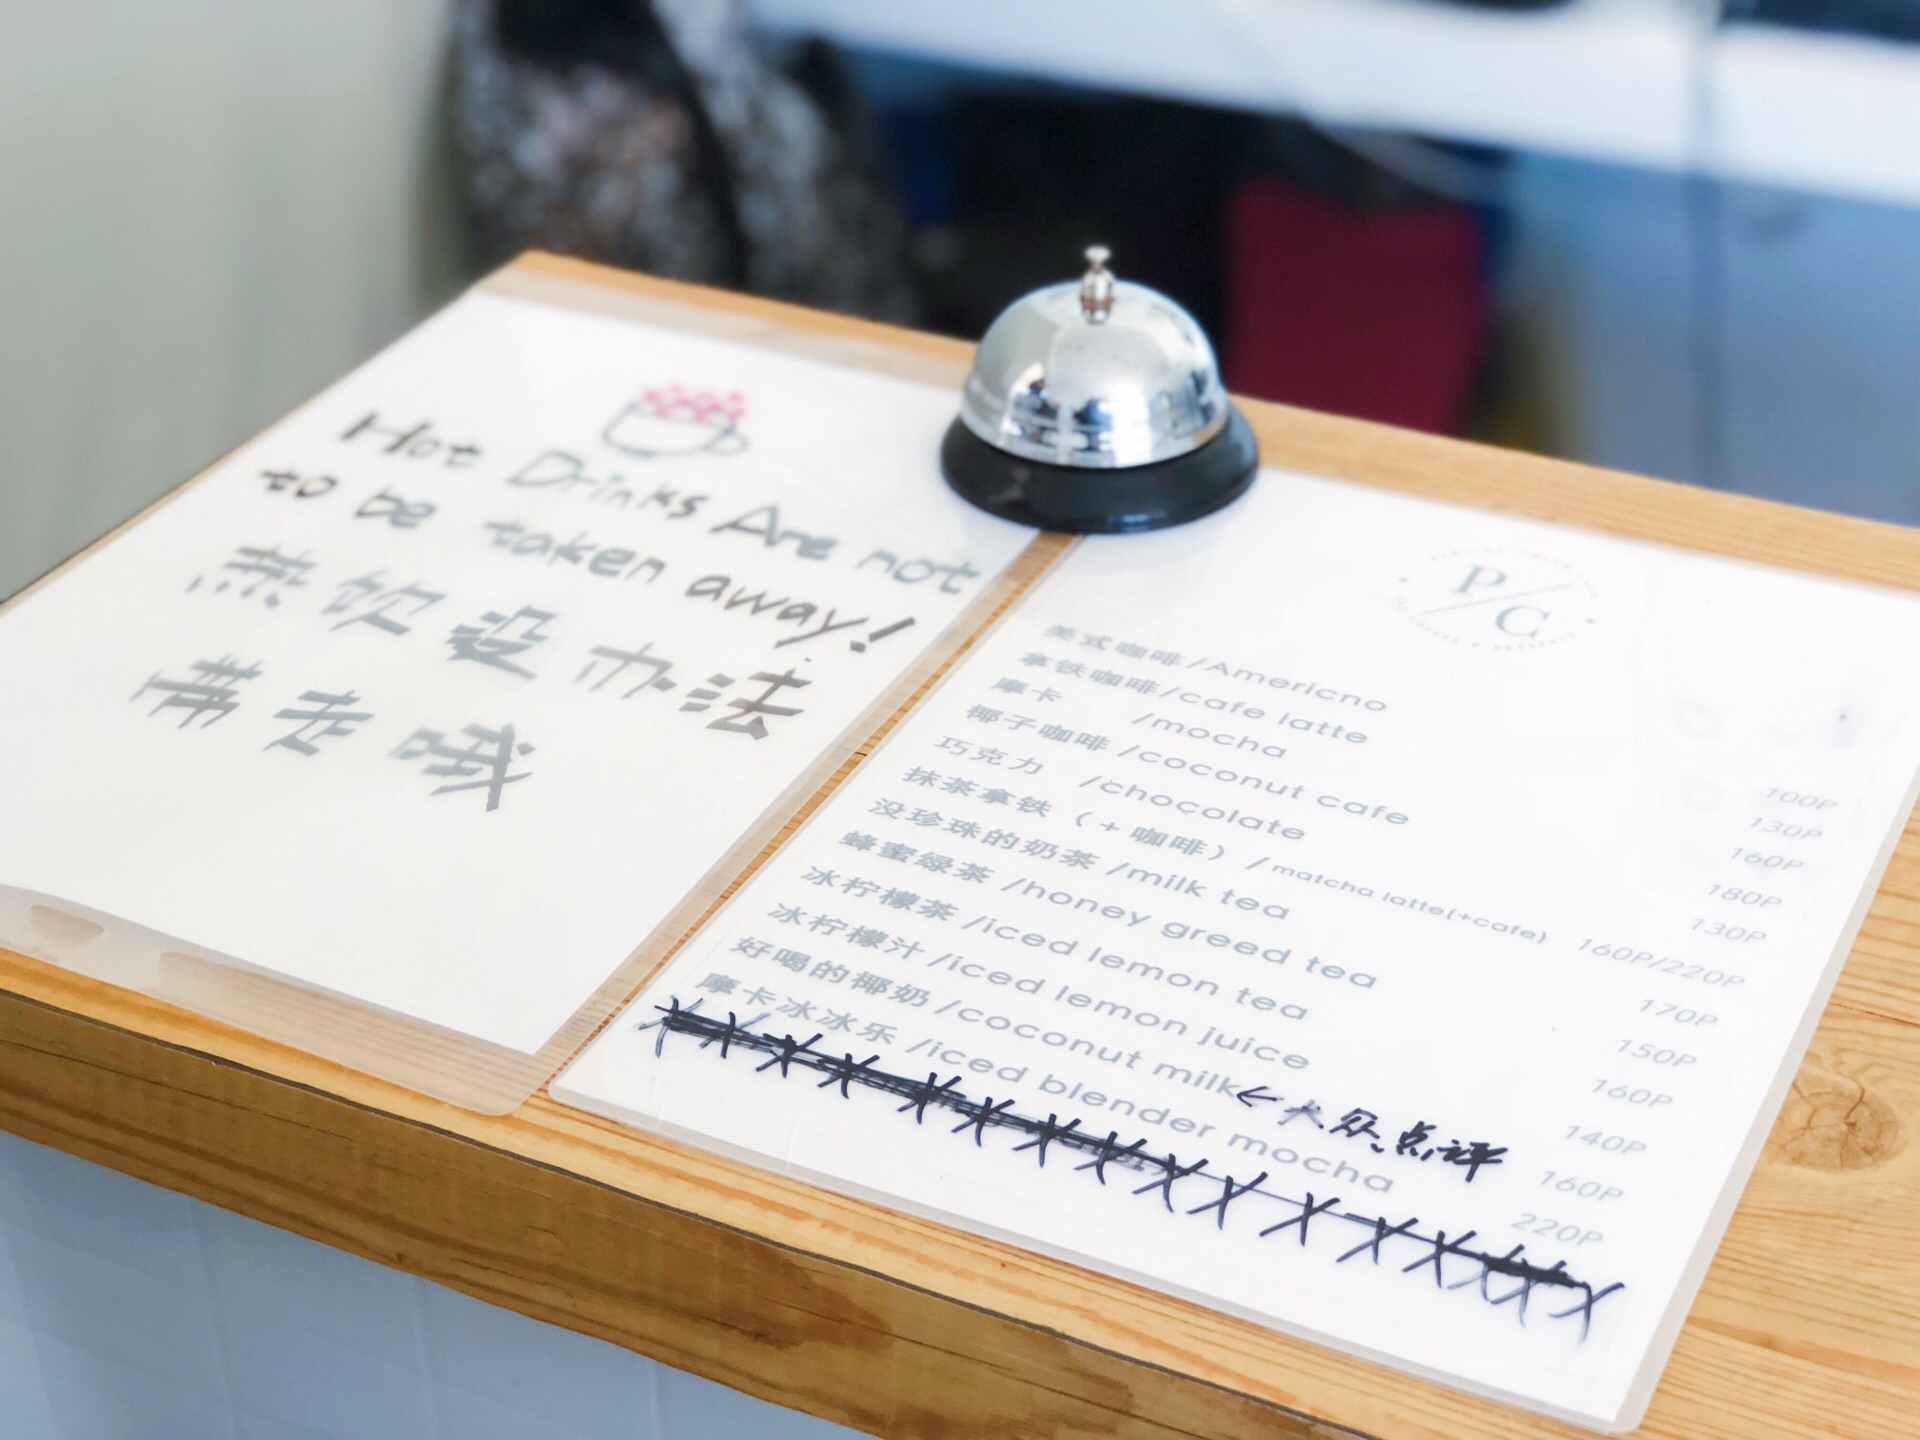 Hot Drinks Are not
to be taken away!
热饮没办法
带走哦
P/C
美式咖啡/Americno 100P
拿铁咖啡/cafe latte 130P
摩卡 /mocha 160P
椰子咖啡 /coconut cafe 180P
巧克力 /chocolate 130P
抹茶拿铁 (+咖啡) /matcha latte(+cafe) 160P/220P
没珍珠的奶茶 /milk tea 170P
蜂蜜绿茶 /honey greed tea 150P
冰柠檬茶 /iced lemon tea 160P
冰柠檬汁 /iced lemon juice 140P
好喝的椰奶 /coconut milk ← 大众点评 160P
摩卡冰冰乐 /iced blender mocha 220P